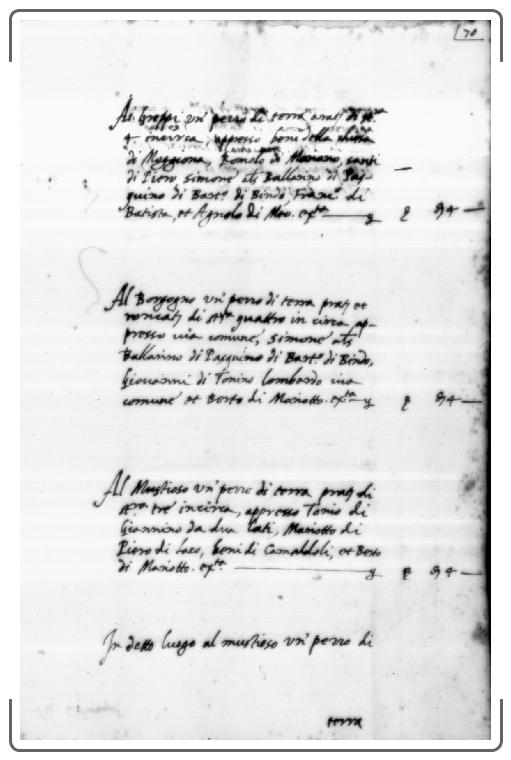 70
Ai Greppi un' pezzo di terra arati di st.ra
4 incirca, appresso beni della chiesa
di Moggiona, Romolo di Mariano, santi
di Piero, simone als Ballarino di Pas-
quino di Bart.o di Bindo, Franc.o di
Batista, et Agnolo di Meo. ex.ta
Al Borgogno un' pezzo di terra prati et
roncati di st.ra quattro in circa ap-
presso via comune, simone als
Ballarino di Pasquino di Bart.o di Bindo,
Giovanni di Tonino lombardo via
comune et Berto di Mariotto. ex.ta
Al Mustioso un' pezzo di terra prati di
st.ra tre incirca, appresso Tonio di
Giannino da dua lati, Mariotto di
Piero di Laco, beni di Camaldoli, et Berto
di Mariotto. ex.ta
In detto luogo al mustioso un' pezzo di
terra